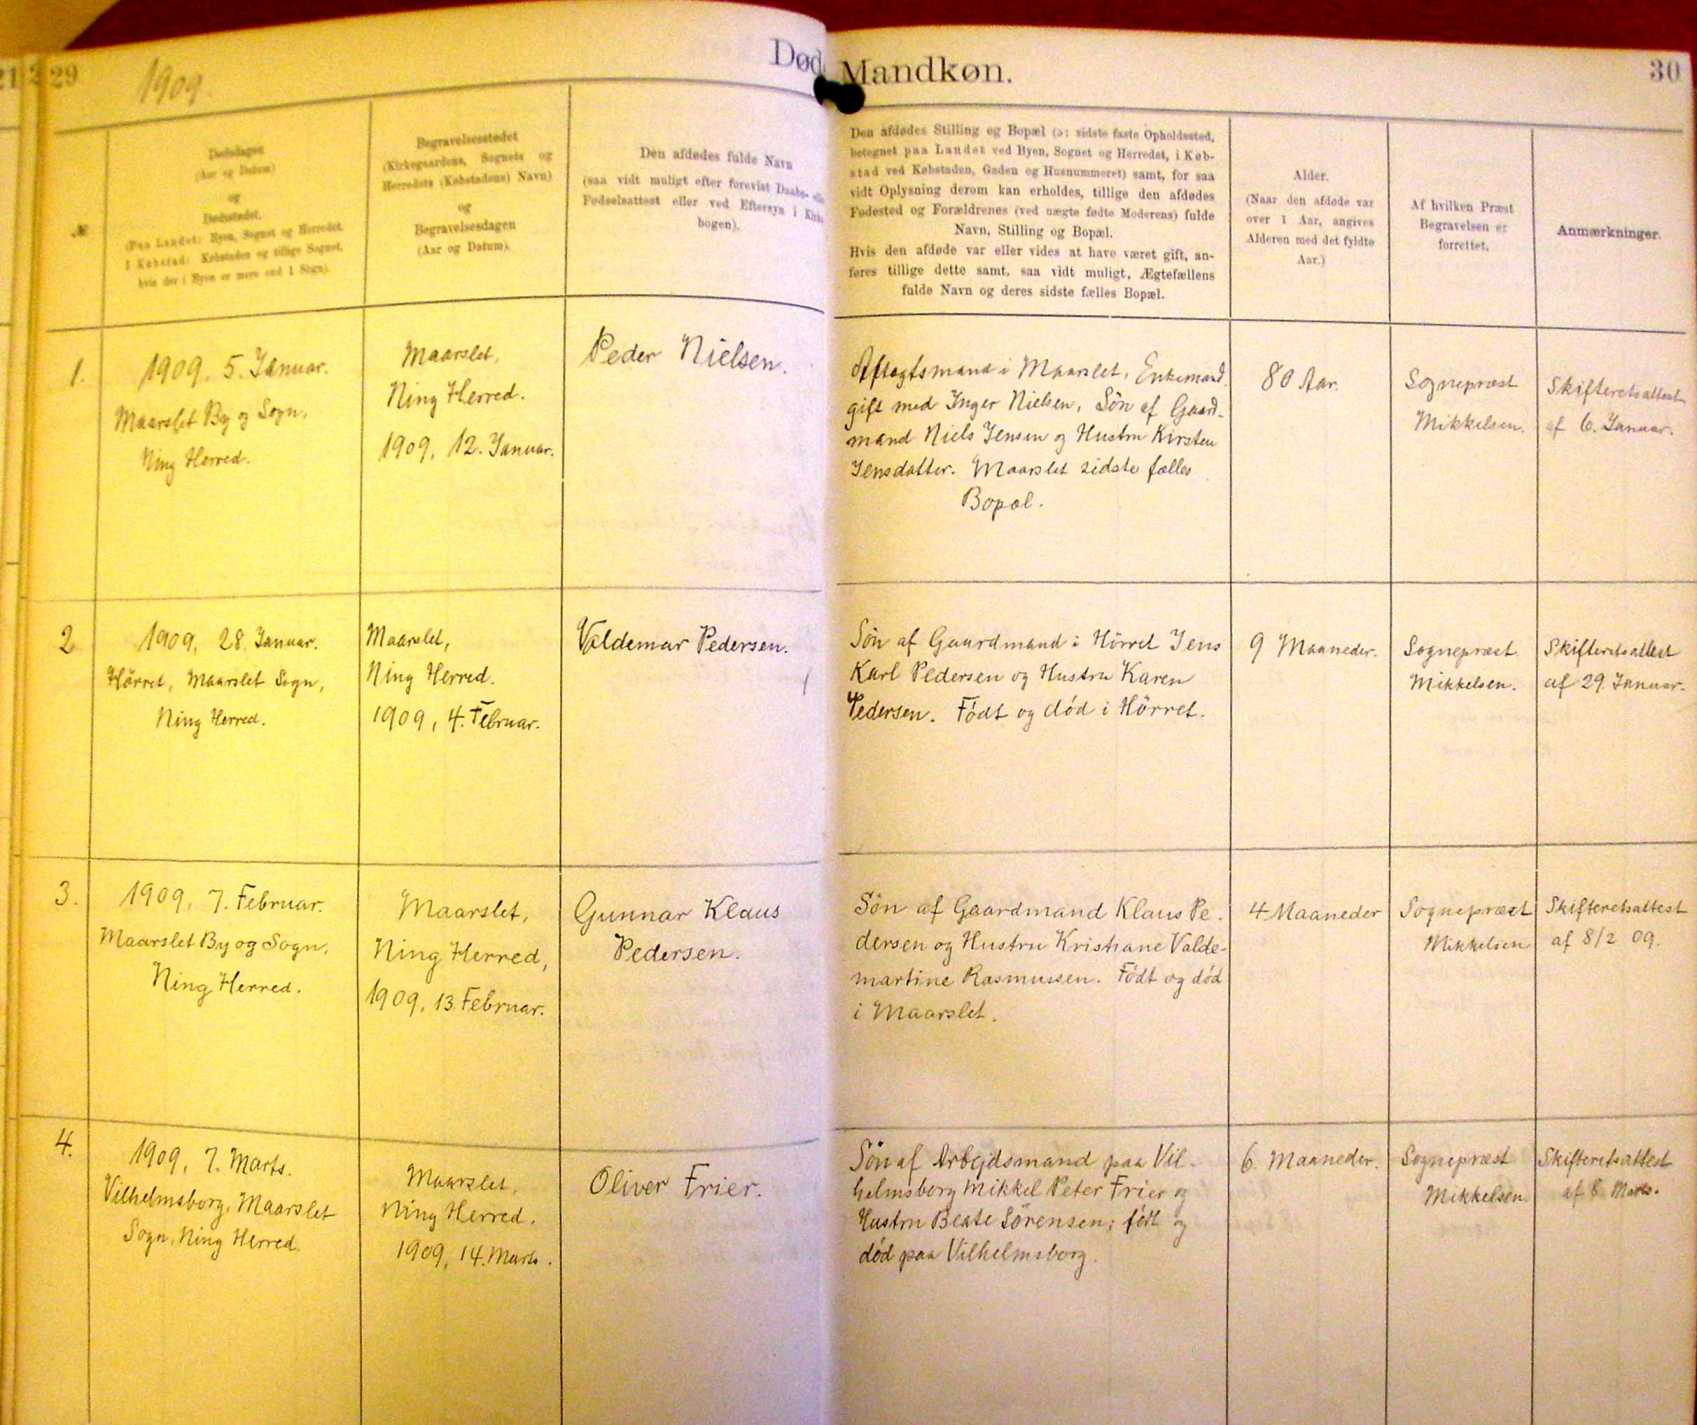 29
1909.
Død
Mandkøn.
30
№
Dødsdagen
(Aar og Datum)
og
Dødsstedet.
(Paa Landet: Byen, Sognet og Herredet.
I Købstad: Købstaden og tillige Sognet,
hvis der i Byen er mere end 1 Sogn).
Begravelsesstedet
(Kirkegaardens, Sognets og
Herredets (Købstadens) Navn)
og
Begravelsesdagen
(Aar og Datum).
Den afdødes fulde Navn
(saa vidt muligt efter forevist Daabs-
Fødselsattest eller ved Eftersyn i
bogen).
Den afdødes Stilling og Bopæl (ɔ: sidste faste Opholdssted,
betegnet paa Landet ved Byen, Sognet og Herredet, i Køb-
stad ved Købstaden, Gaden og Husnummeret) samt, for saa
vidt Oplysning derom kan erholdes, tillige den afdødes
Fødested og Forældrenes (ved uægte fødte Moderens) fulde
Navn, Stilling og Bopæl.
Hvis den afdøde var eller vides at have været gift, an-
føres tillige dette samt, saa vidt muligt, Ægtefællens
fulde Navn og deres sidste fælles Bopæl.
Alder.
(Naar den afdøde var
over 1 Aar, angives
Alderen med det fyldte
Aar.)
Af hvilken Præst
Begravelsen er
forrettet.
Anmærkninger.
1.
1909. 5. Januar.
Maarslet By og Sogn,
Ning Herred.
Maarslet,
Ning Herred.
1909, 12. Januar.
Peder Nielsen.
Aftægtsmand i Maarslet, Enkemand
gift med Inger Nielsen, Søn af Gaard-
mand Niels Jensen og Hustru Kirsten
Jensdatter. Maarslet sidste fælles
Bopæl.
80 Aar.
Sognepræst
Mikkelsen.
Skifteretsattest
af 6. Januar.
2
1909, 28. Januar.
Hörret, Maarslet Sogn,
Ning Herred.
Maarslet,
Ning Herred.
1909, 4. Februar.
Valdemar Pedersen.
Søn af Gaardmand i Hörret Jens
Karl Pedersen og Hustru Karen
Pedersen. Født og død i Hörret.
9 Maaneder.
Sognepræst
Mikkelsen.
Skifteretsattest
af 29. Januar.
3.
1909, 7. Februar.
Maarslet By og Sogn,
Ning Herred.
Maarslet,
Ning Herred,
1909, 13. Februar.
Gunnar Klaus
Pedersen.
Søn af Gaardmand Klaus Pe-
dersen og Hustru Kristiane Valde-
martine Rasmussen. Født og død
i Maarslet.
4 Maaneder
Sognepræst
Mikkelsen
Skifteretsattest
af 8/2 09.
4.
1909, 7. Marts.
Vilhelmsborg, Maarslet
Sogn, Ning Herred.
Maarslet,
Ning Herred.
1909, 14. Marts.
Oliver Frier.
Søn af Arbejdsmand paa Vil-
helmsborg Mikkel Peter Frier og
Hustru Beate Sørensen; født og
død paa Vilhelmsborg.
6 Maaneder.
Sognepræst
Mikkelsen
Skifteretsattest
af 8. Marts.